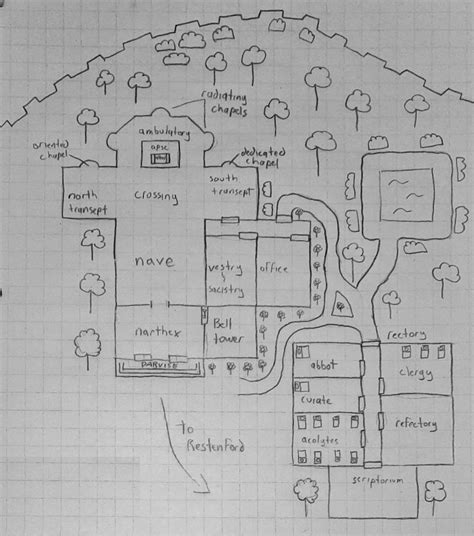 radiating
chapels
ambulatory
apse
oriented
chapel
dedicated
chapel
north
transept
crossing
south
transept
nave
vestry
sacistry
office
narthex
Bell
tower
PARVISE
To
Restenford
rectory
abbot
clergy
curate
acolytes
refectory
scriptorium